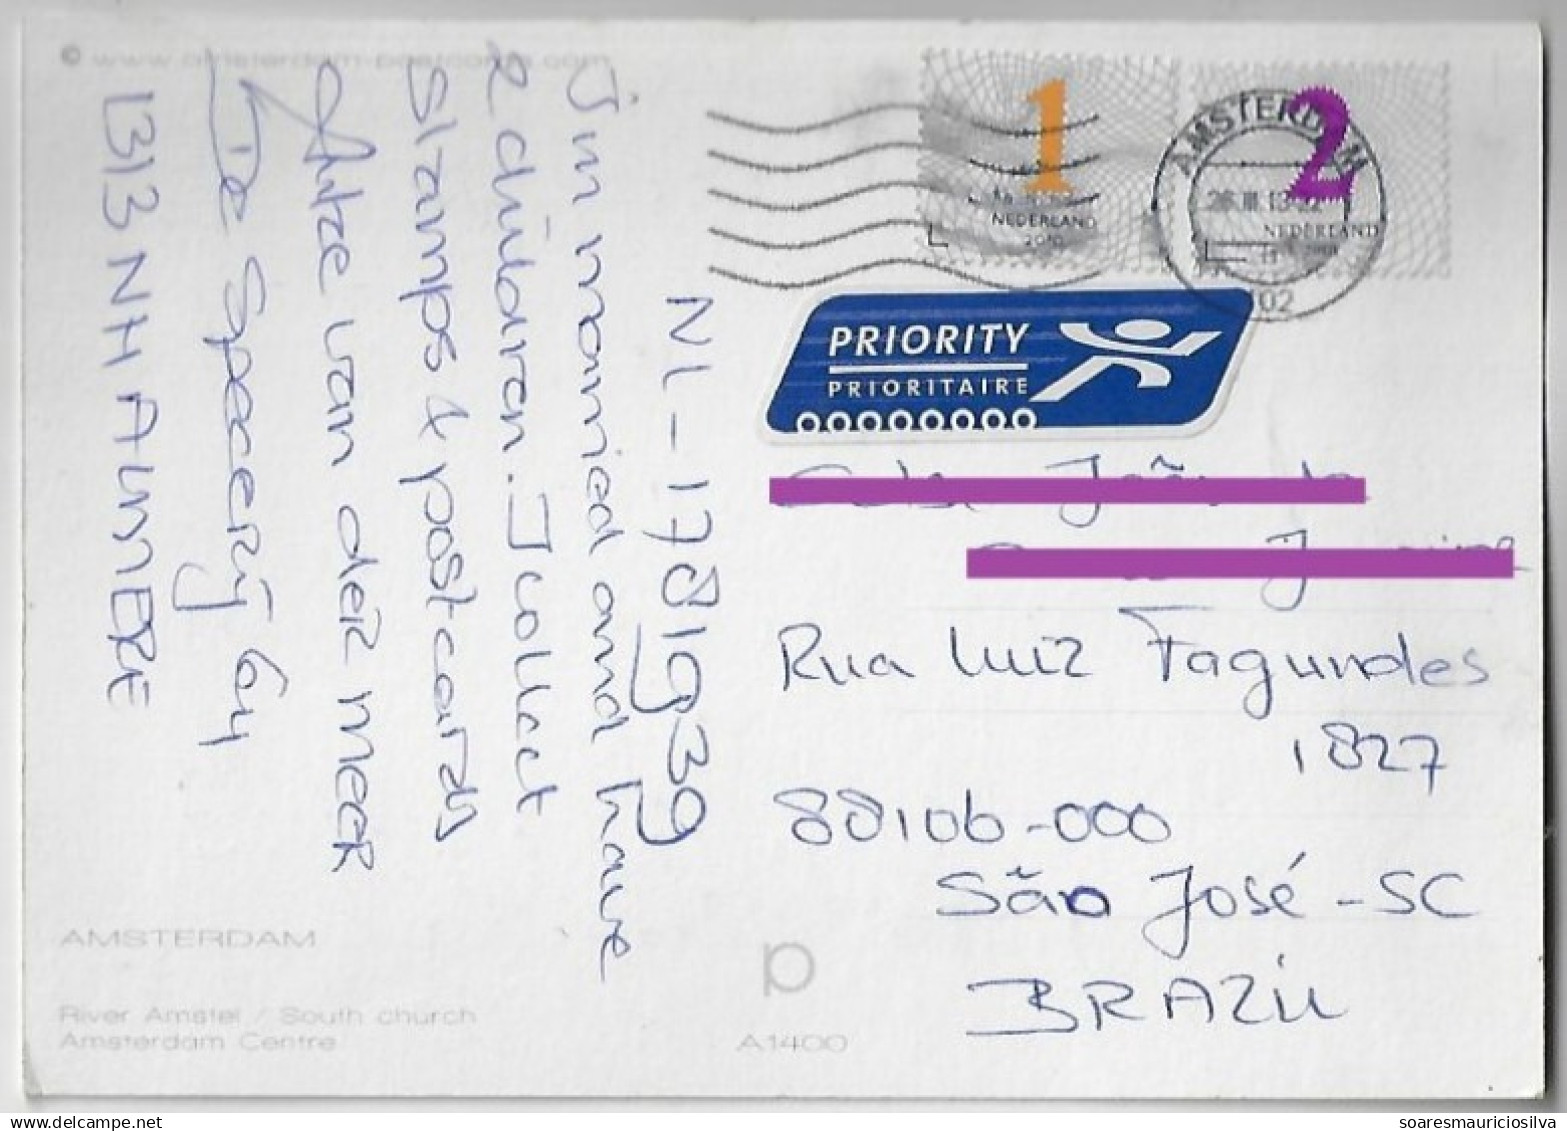 © www.amsterdam-postcards.com
NL-1781939
I'm married and have
2 children. I collect
Stamps & postcards
Antze van der Meer
De Specerij 64
1313 NH ALMERE
AMSTERDAM
River Amstel / South church
Amsterdam Centre
p
A1400
1
NEDERLAND
2010
2
NEDERLAND
AMSTERDAM
02
PRIORITY
PRIORITAIRE
Rua Luiz Fagundes
1827
88106-000
São José - SC
BRAZIL
soaresmauriciosilva